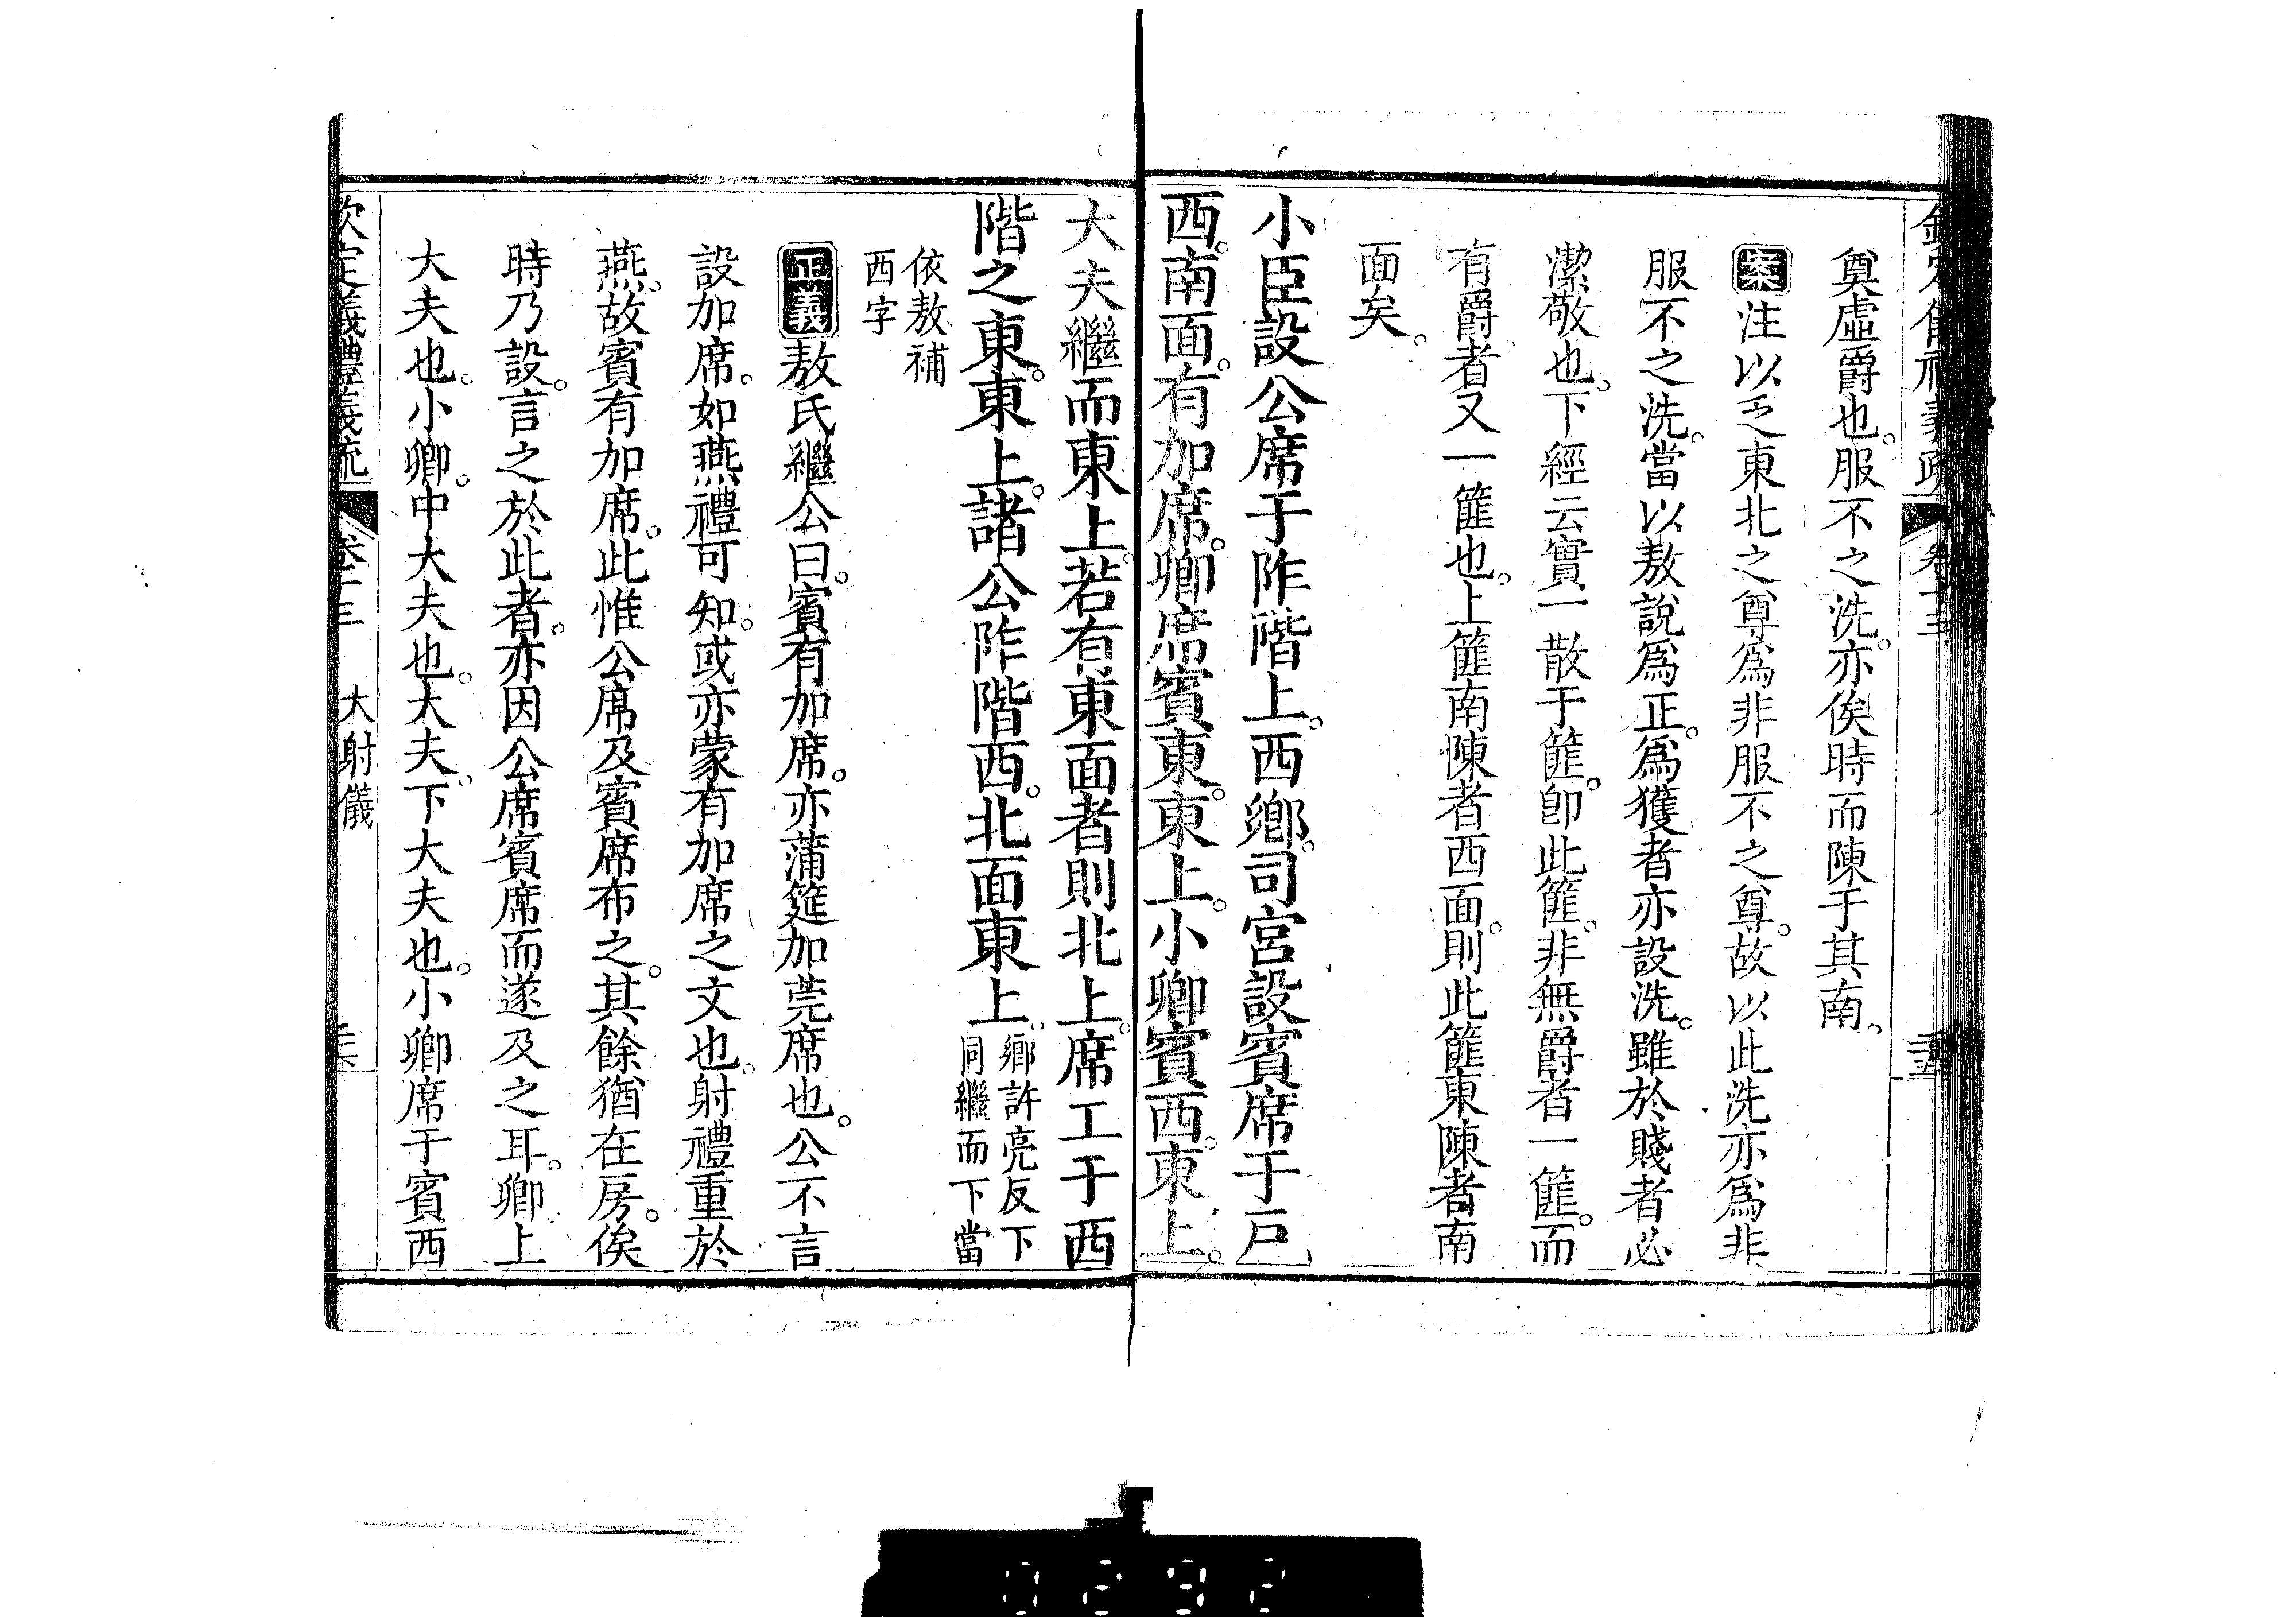 奠虛爵也。服不之洗。亦俟時而陳于其南。
案注以乏東北之尊爲非服不之尊。故以此洗亦爲非
服不之洗。當以敖說爲正。爲獲者亦設洗。雖於賤者必
潔敬也。下經云實一散于篚。卽此篚。非無爵者一篚。而
有爵者又一篚也。上篚南陳者西面。則此篚東陳者南
面矣。
小臣設公席于阼階上。西鄉。司宮設賓席于戶
西。南面。有加席。卿席賓東。東上。小卿賓西。東上。
大夫繼而東上。若有東面者則北上。席工于西
階之東。東上。諸公阼階西。北面東上。鄉許亮反下
同繼而下當
依敖補
西字
正義敖氏繼公曰。賓有加席。亦蒲筵加莞席也。公不言
設加席。如燕禮可知。或亦蒙有加席之文也。射禮重於
燕。故賓有加席。此惟公席及賓席布之。其餘猶在房。俟
時乃設。言之於此者。亦因公席賓席而遂及之耳。卿上
大夫也。小卿。中大夫也。大夫。下大夫也。小卿席于賓西
欽定儀禮義疏 卷十三 大射儀